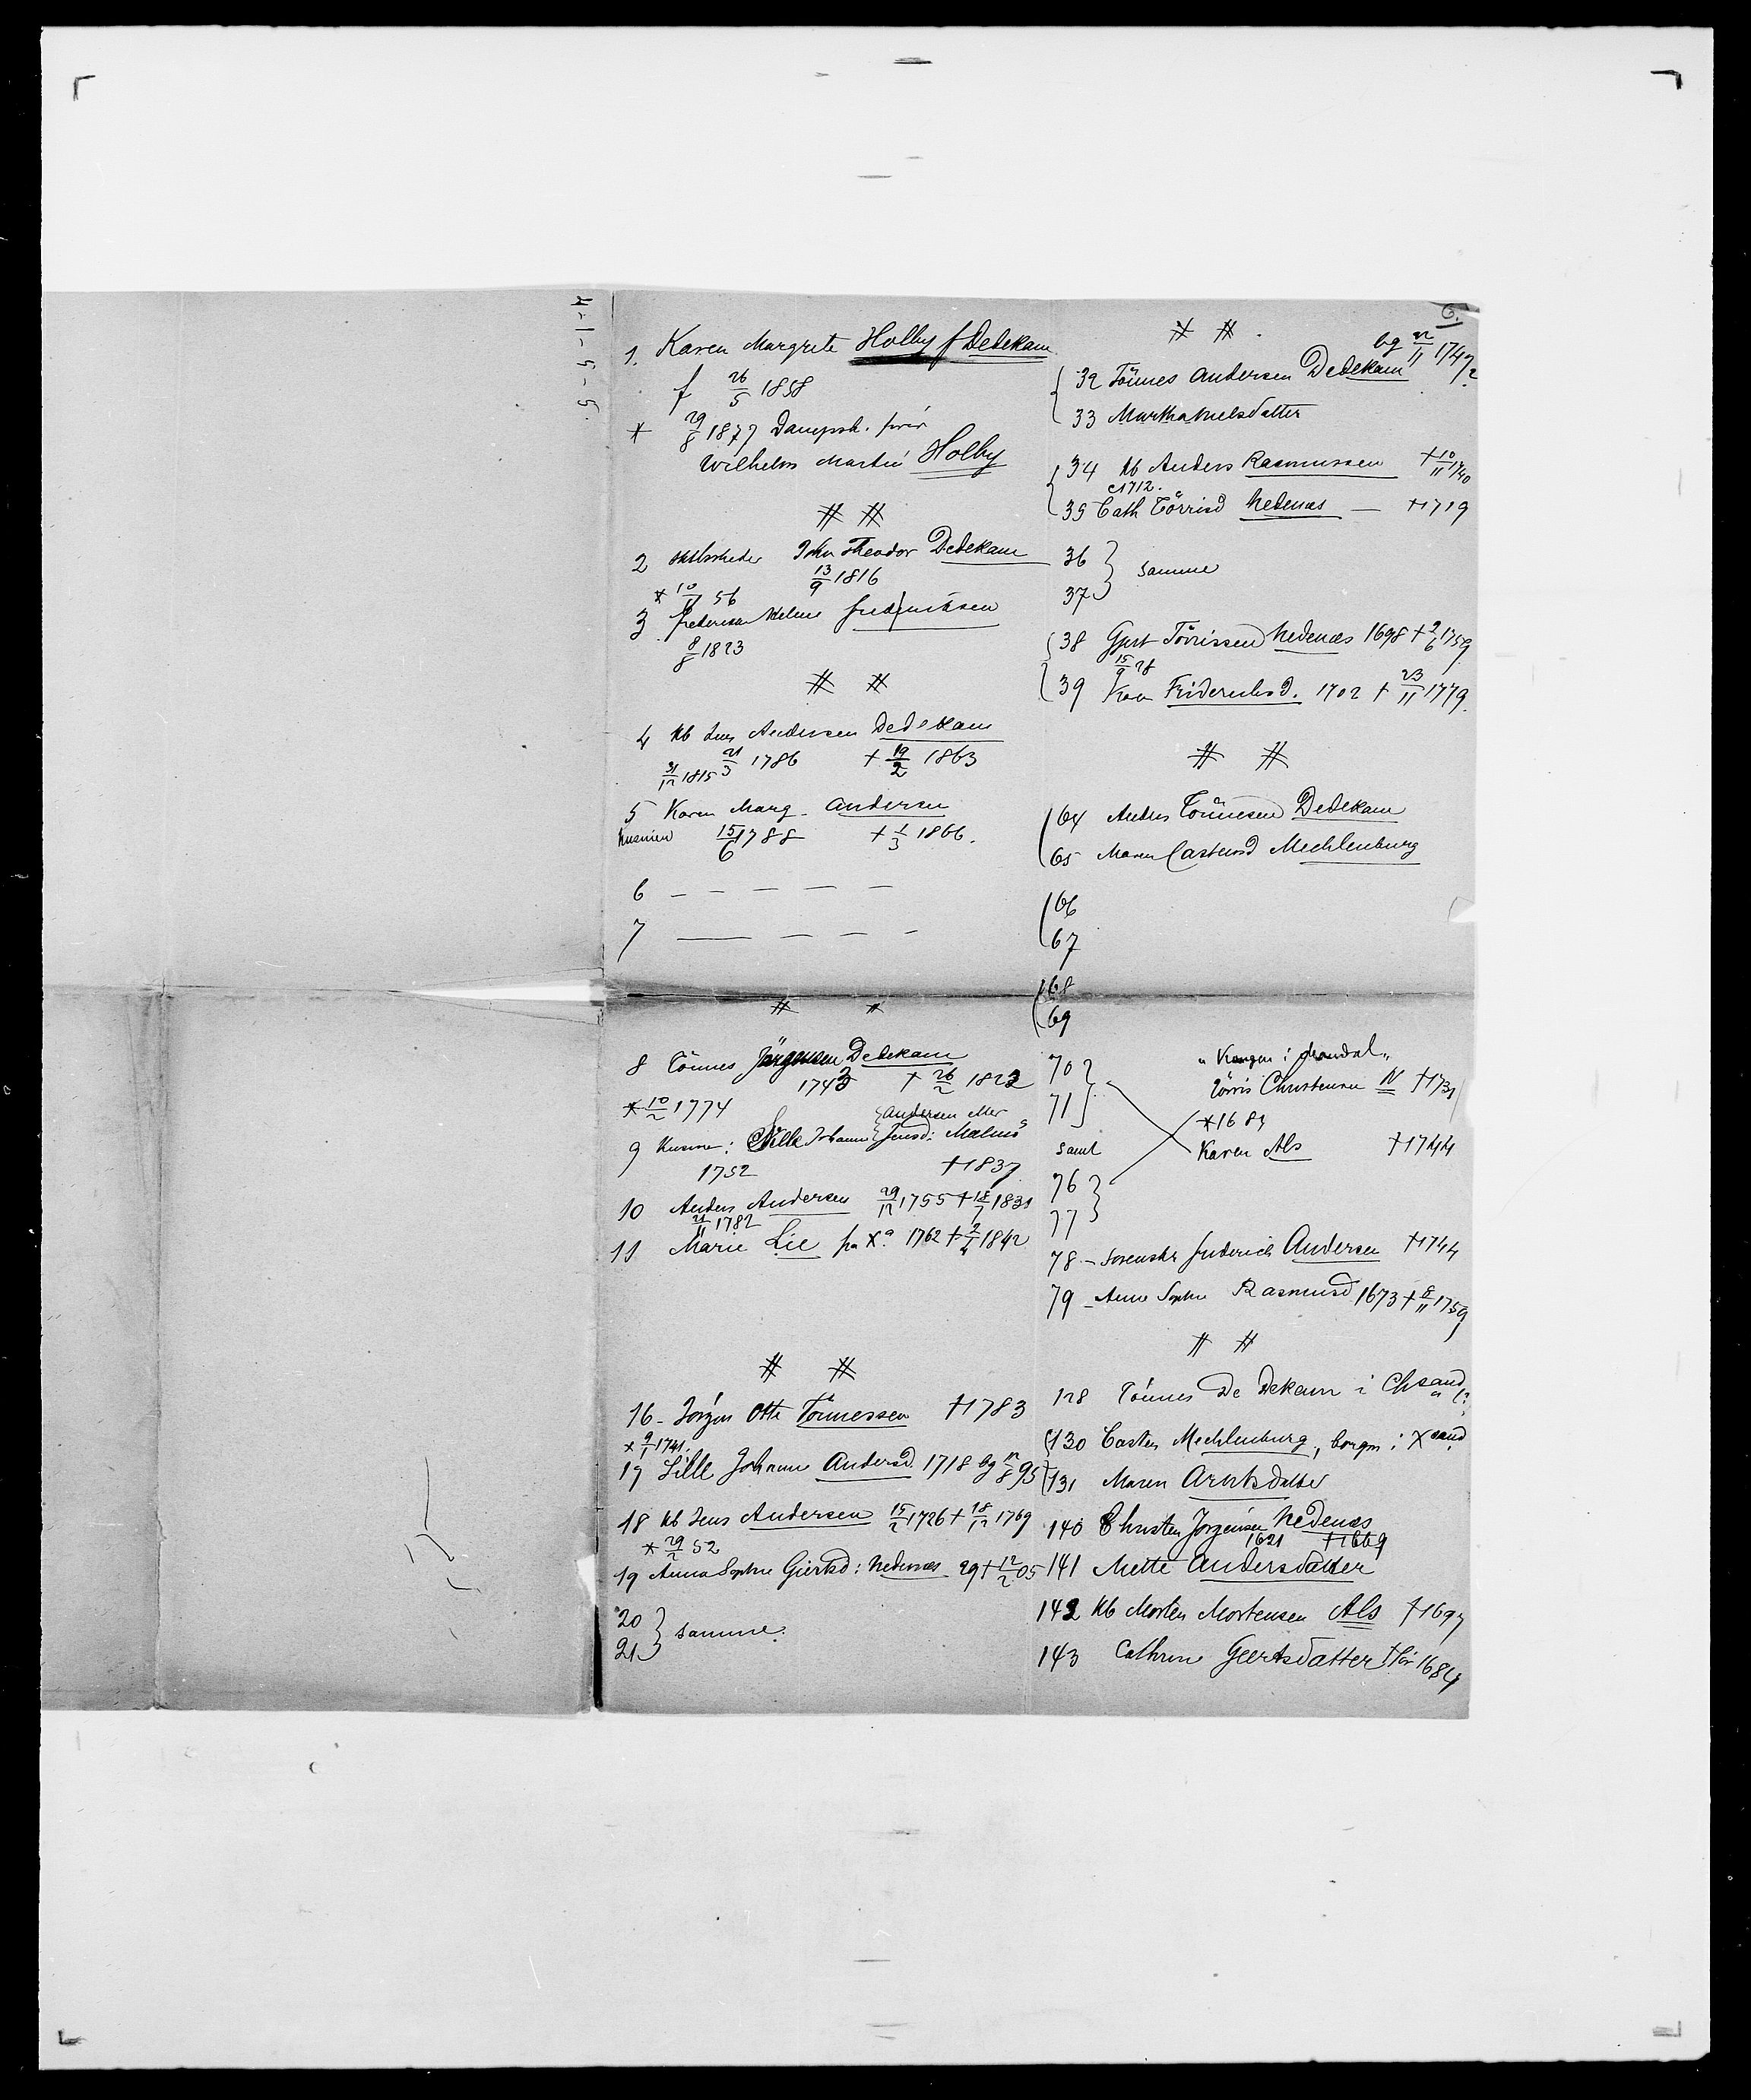 1. Karen Margrete Holby f Dedekam
f 26/5 1858
* 29/8 1877 Dampsk. fører
Wilhelm Martin Holby
# #
2 John Theodor Dedekam
13/9 1816
* 10/ 56
3 Helene
8/8 1823
# #
4 kb Jens Andersen Dedekam
31/12 1815 21/3 1786 † 19/2 1863
5 Karen Marg. Andersen
Kusine 15/6 1788 † 1/3 1866.
6 — — — — —
7 — — — —
# #
8 Tönnes Jörgensen Dedekam
1743 † 26/2 1823
* 10/2 1774
9 Kusine: Sille Johanne { Andersen eller Jensd: Malmö
1752 † 1837
10 Anders Andersen 29/12 1755 † 18/7 1831
21/11 1782
11 Marie Lie fra Xa 1762 † 2/4 1842
# #
16 - Jörgen Otte Tönnessen † 1783
* 9/1 1741.
17 Sille Johanne Andersd. 1718 bg 12/8 95
18 kb Jens Andersen 15/2 1726 † 18/12 1769
* 29/2 52
19 Anna Sophie Giertsd: Nedenæs 29 † 12/2 05
20
21 } samme.
6.
# #
bg 22/11 1747?
{ 32 Tönnes Andersen Dedekam
33 Martha Nielsdatter
{ 34 kb Anders Rasmussen † 10/11 1740
c 1712.
35 Cath Törrisd Nedenæs — † 1719
36
37 } samme
{ 38 Gjert Törrissen Nedenæs 1698 † 2/6 1759
15/9 28
39 Kar Friderichsd. 1702 † 23/11 1779.
# #
( 64 Anders Tönnesen Dedekam
65 Maren Castensd Mechlenburg
( 66
67
( 68
69
70
71 }
samt
76
77 }
"Kongen i Mandal"
Törris Christensen N † 1731
* 1684
Karen Als † 1744
78 - Sorenskr Friderich Andersen † 1744
79 - Anne Sophie Rasmusd 1673 † 8/11 1759
# #
128 Tönnes De Dekam i Chrsand
{ 130 Casten Mechlenburg, borgm i Xsand
131 Maren Arntsdatter
140 Christen Jörgensen Nedenæs
1621 † 1669
141 Mette Andersdatter
142 kb Morten Mortensen Als † 1697
143 Cathrine Geertsdatter † før 1684